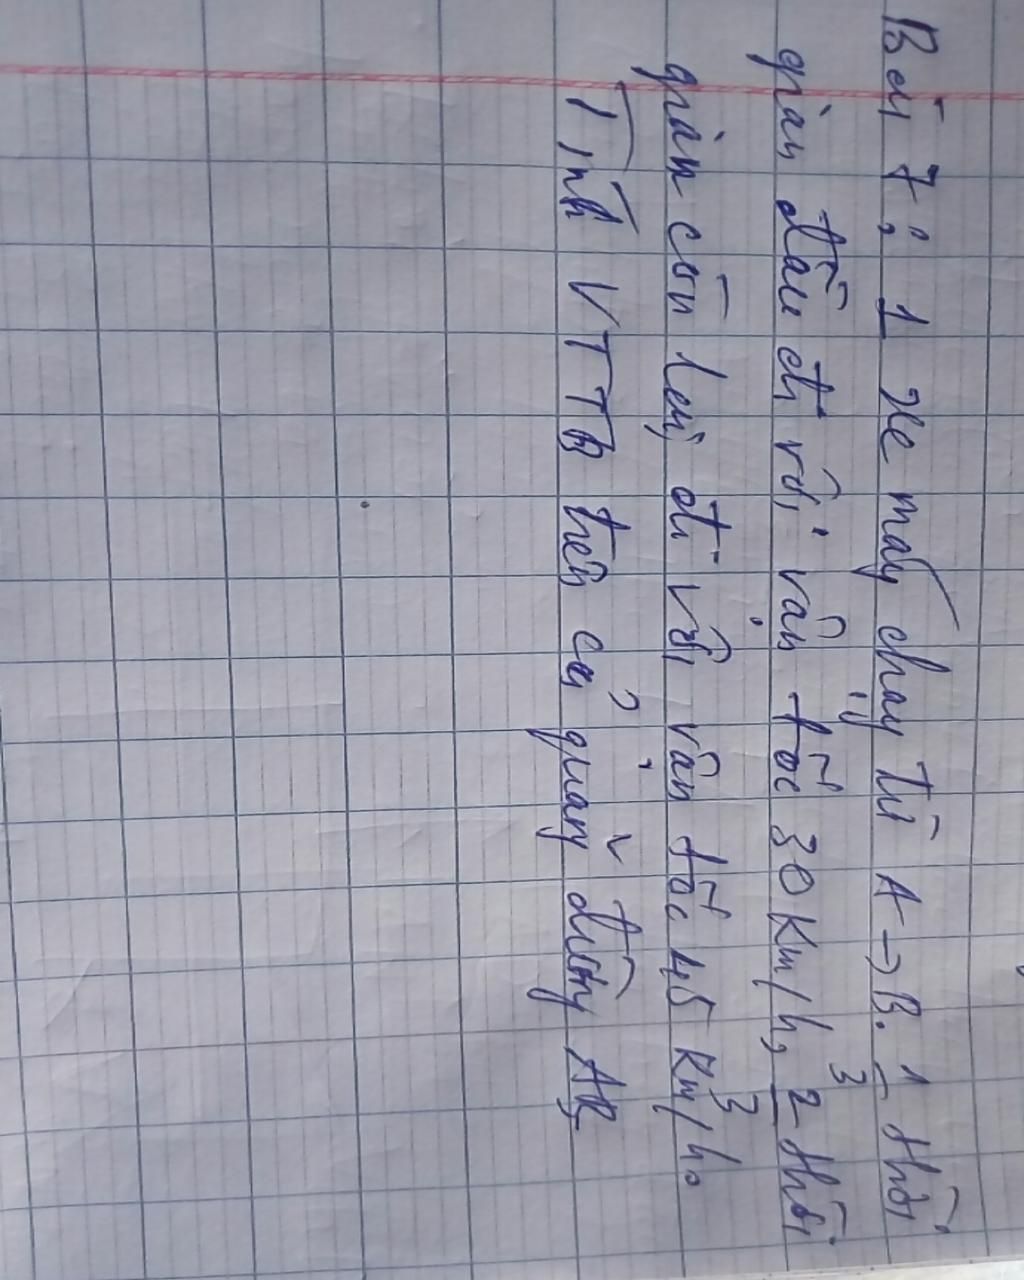 Bài 7: 1 xe máy chạy từ A → B. 1/3 thời
gian đầu đi với vận tốc 30 km/h, 2/3 thời
gian còn lại đi với vận tốc 45 km/h.
Tính VTTB trên cả quãng đường AB